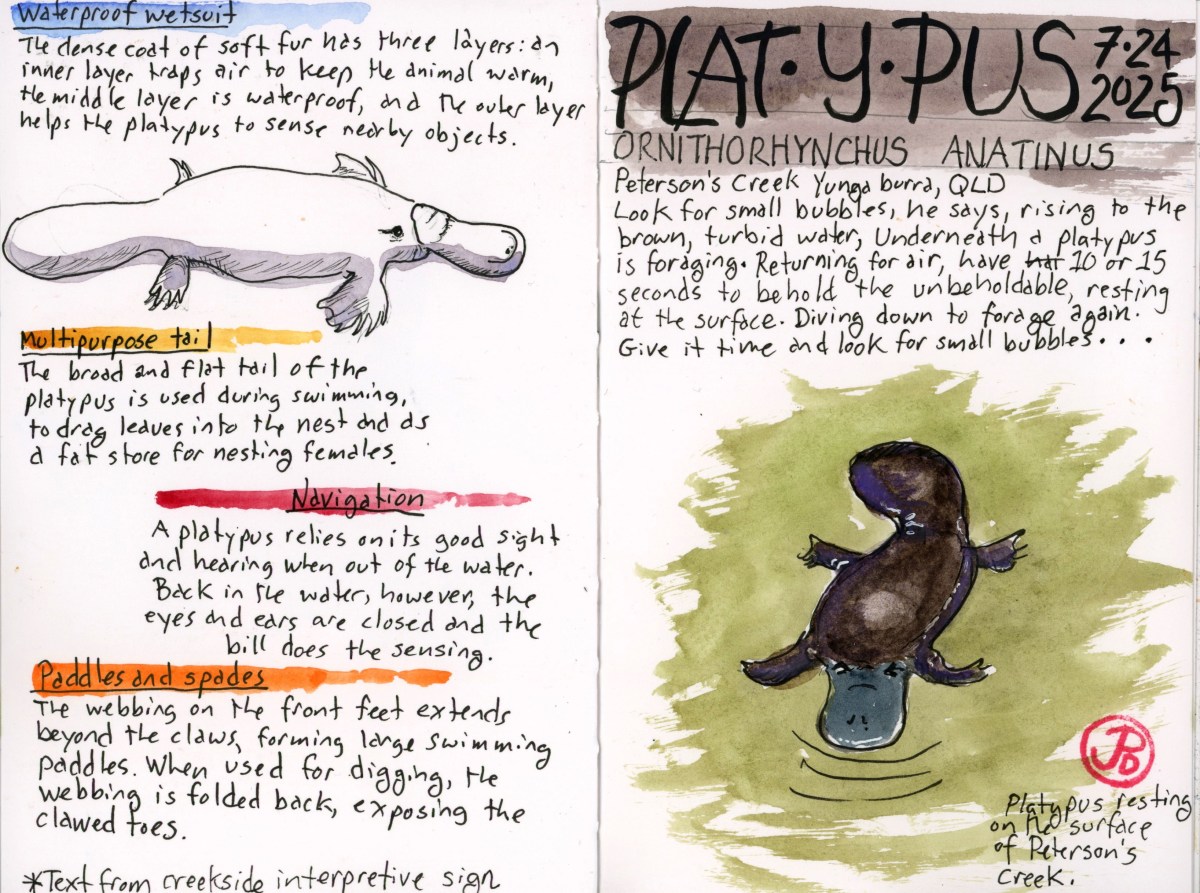 Waterproof wetsuit
The dense coat of soft fur has three layers: an
inner layer traps air to keep the animal warm,
the middle layer is waterproof, and the outer layer
helps the platypus to sense nearby objects.
Multipurpose tail
The broad and flat tail of the
platypus is used during swimming,
to drag leaves into the nest and as
a fat store for nesting females.
Navigation
A platypus relies on its good sight
and hearing when out of the water.
Back in the water, however, the
eyes and ears are closed and the
bill does the sensing.
Paddles and spades
The webbing on the front feet extends
beyond the claws, forming large swimming
paddles. When used for digging, the
webbing is folded back, exposing the
clawed toes.
*Text from creekside interpretive sign
PLAT·Y·PUS
7·24
2025
ORNITHORHYNCHUS ANATINUS
Peterson's Creek Yungaburra, QLD
Look for small bubbles, he says, rising to the
brown, turbid water, Underneath a platypus
is foraging. Returning for air, have 10 or 15
seconds to behold the unbeholdable, resting
at the surface. Diving down to forage again.
Give it time and look for small bubbles....
JPD
Platypus resting
on the surface
of Peterson's
Creek.